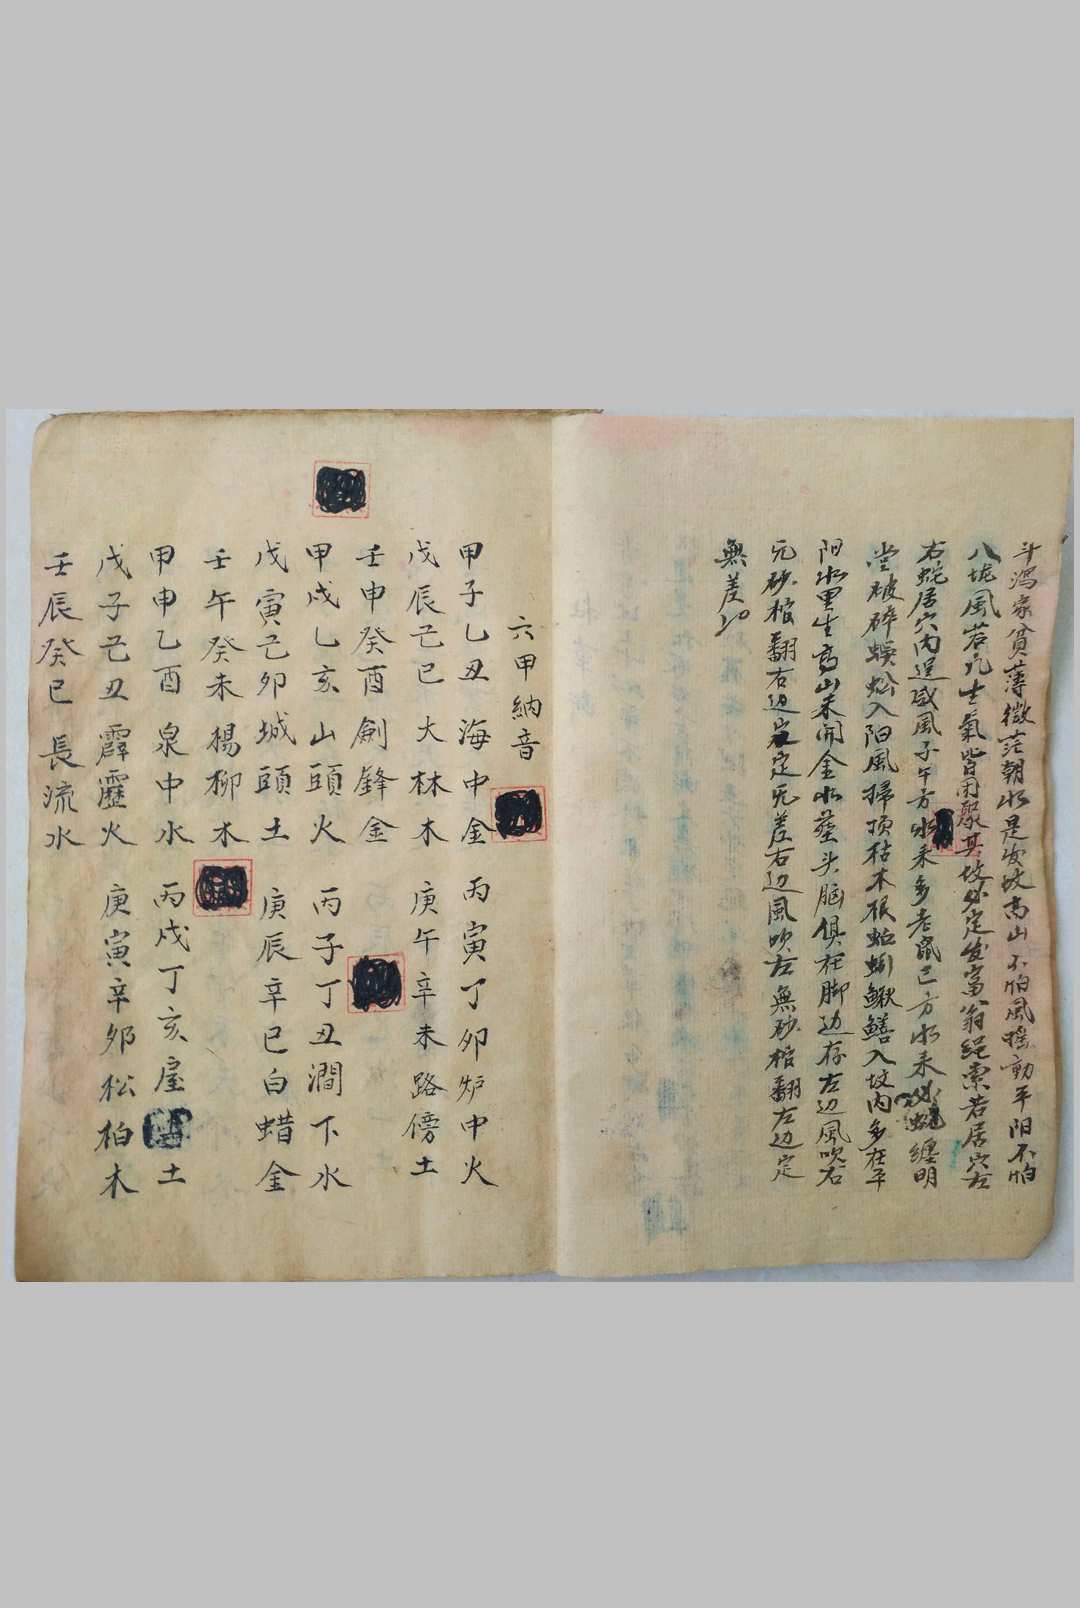 斗瀉家貧薄微茫朝水是发坟高山不怕風摇動平阳不怕
八坭風若氕生氣皆用聚其坟必定发富翁繩索若居穴左
右蛇居穴内逞威風子午方水来多老鼠巳方水来蛇缠明
堂破碎蜈蚣入阳風掃頂枯木根蚯蚓鳅鳝入坟内多在平
阳水里生高山未開金水墓头脑俱在脚边存左边風吹右
无砂棺翻右边定无差右边風吹左無砂棺翻左边定
無差
六甲納音
甲子乙丑海中金 丙寅丁卯炉中火
戊辰己巳大林木 庚午辛未路傍土
壬申癸酉劍鋒金
甲戌乙亥山頭火 丙子丁丑澗下水
戊寅己卯城頭土 庚辰辛巳白蜡金
壬午癸未楊柳木
甲申乙酉泉中水 丙戌丁亥屋土
戊子己丑霹靂火 庚寅辛卯松柏木
壬辰癸巳長流水